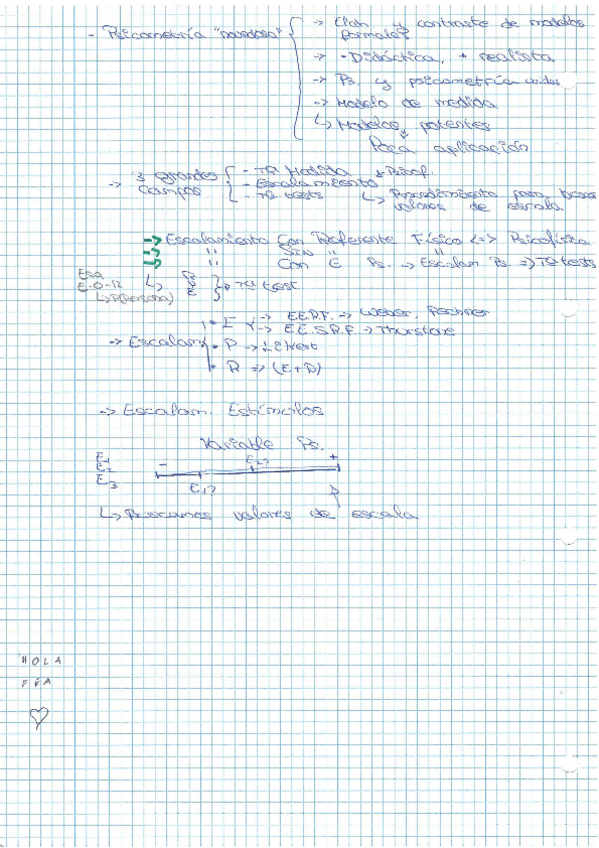 - Psicometría "novedosa"
-> Elab. y contraste de modelos formales
-> - Didáctica, + realista
-> Ps. y psicometría unidas
-> Modelo de medida
↳ Modelos potentes
Poca aplicación
-> 3 grandes campos
- Tª Medida y Psicof.
- Escalamiento
- Tª tests
↳ Procedimiento para buscar valores de escala
-> Escalamiento Con Referente Físico <-> Psicofísica
-> " Sin " "
-> " Con E Ps. -> Escalam. Ps. => Tª tests
Esq. E-O-R
↳ P(Persona)
↳ R P E } -> Tª test
-> Escalam.
• E
-> E.E.R.F. -> Weber, Fechner
-> E.E.S.R.F -> Thurstone
• P -> Likert
• R => (E+P)
-> Escalam. Estímulos
Variable Ps.
E1
E2
E3
- +
E2?
E1?
↳ Buscamos valores de escala
HOLA
FEA